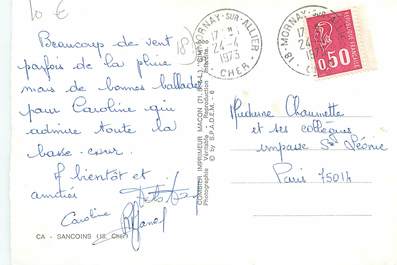 10 €
Beaucoup de vent
parfois de la pluie
mais de bonnes ballades
pour Caroline qui
admire toute la
basse-cour.
A bientôt et
amitiés
Caroline
CA - SANCOINS (18. Cher)
COMBIER IMPRIMEUR MACON (71. S.-&-L.) "CIM"
Photographie Véritable - Reproduction interdite
© by S.P.A.D.E.M. - 6
18 - MORNAY-SUR-ALLIER
17 H
24-4
1973
CHER
18 - MORNAY-SUR-ALLIER
17 H
24-4
1973
CHER
REPUBLIQUE FRANÇAISE
0,50
POSTES
Madame Chaumette
et ses collègues
impasse Ste Léonie
Paris 75014